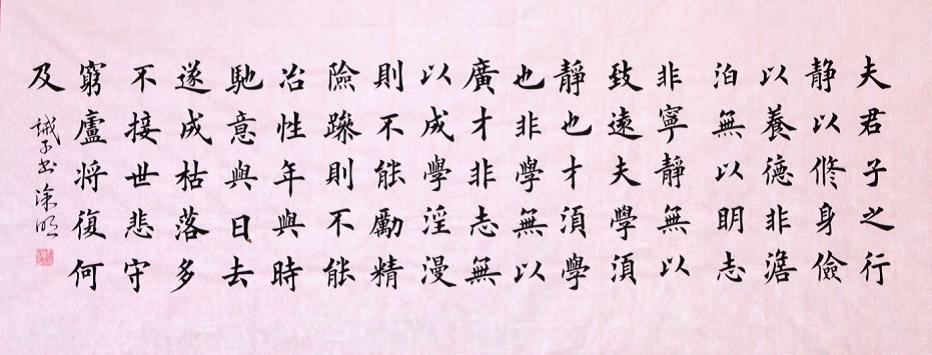 夫君子之行
静以修身儉
以養德非澹
泊無以明志
非寧静無以
致遠夫學須
静也才須學
也非學無以
廣才非志無
以成學淫漫
則不能勵精
險躁則不能
冶性年與時
馳意與日去
遂成枯落多
不接世悲守
窮廬将復何
及
誡子書 涂明